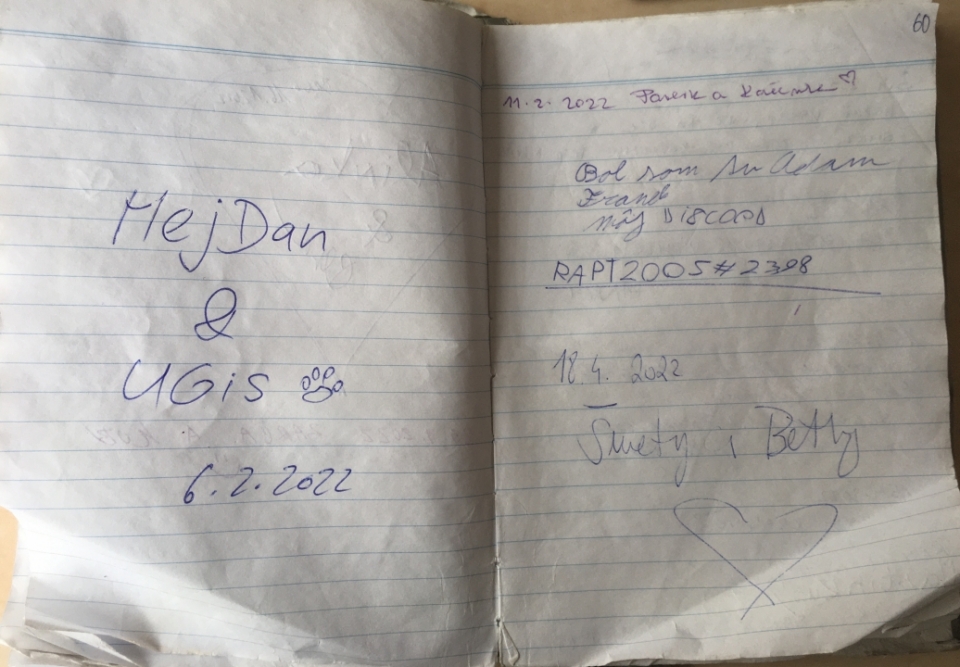 MejDan
&
UGis
6.2.2022
60
11.2.2022 a
Bol som tu Adam
Frank
môj DISCORD
RAPT2005#2398
18.4.2022
i Betty